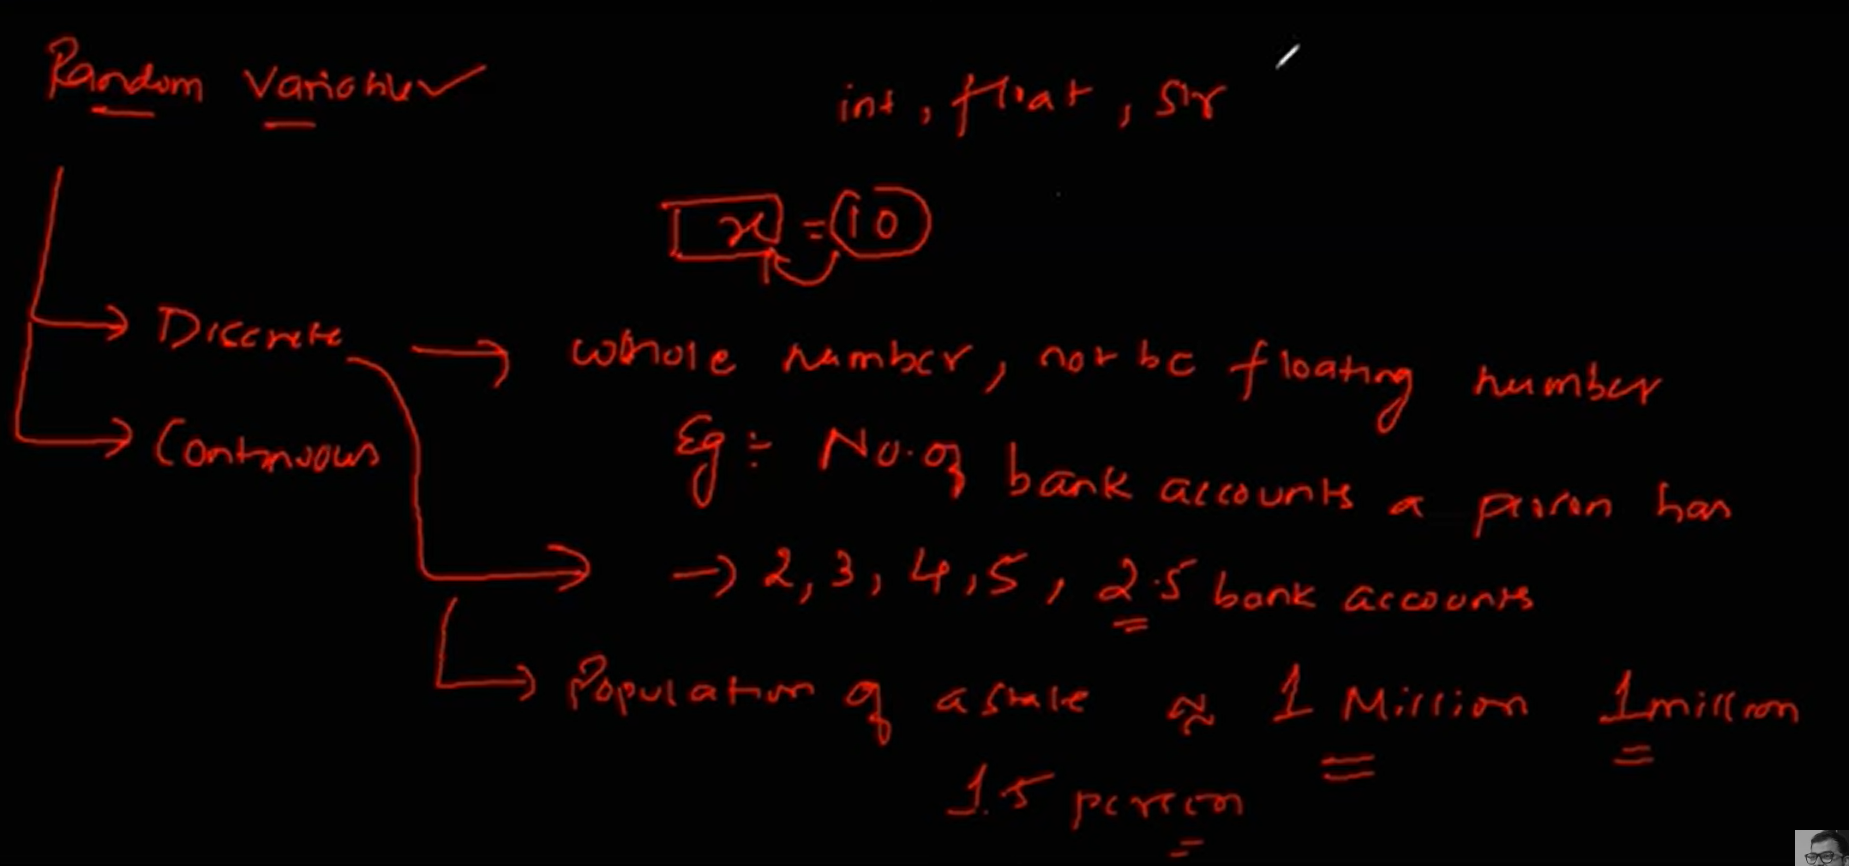 Random Variables
int, float, str
x = 10
Discrete → whole number, not be floating number
Continuous
Eg:- No. of bank accounts a person has
→ 2, 3, 4, 5, 2.5 bank accounts
Population of a state ≈ 1 Million 1 million
1.5 person